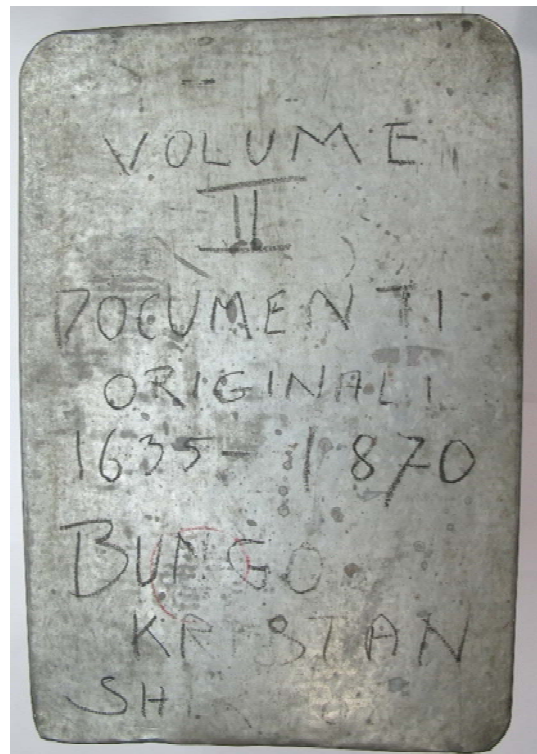 VOLUME
II
DOCUMENTI
ORIGINALI
1635-1870
BUNGO
KRISTAN
SH